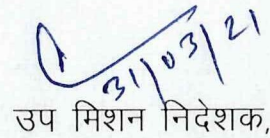 31/03/21
उप मिशन निदेशक,